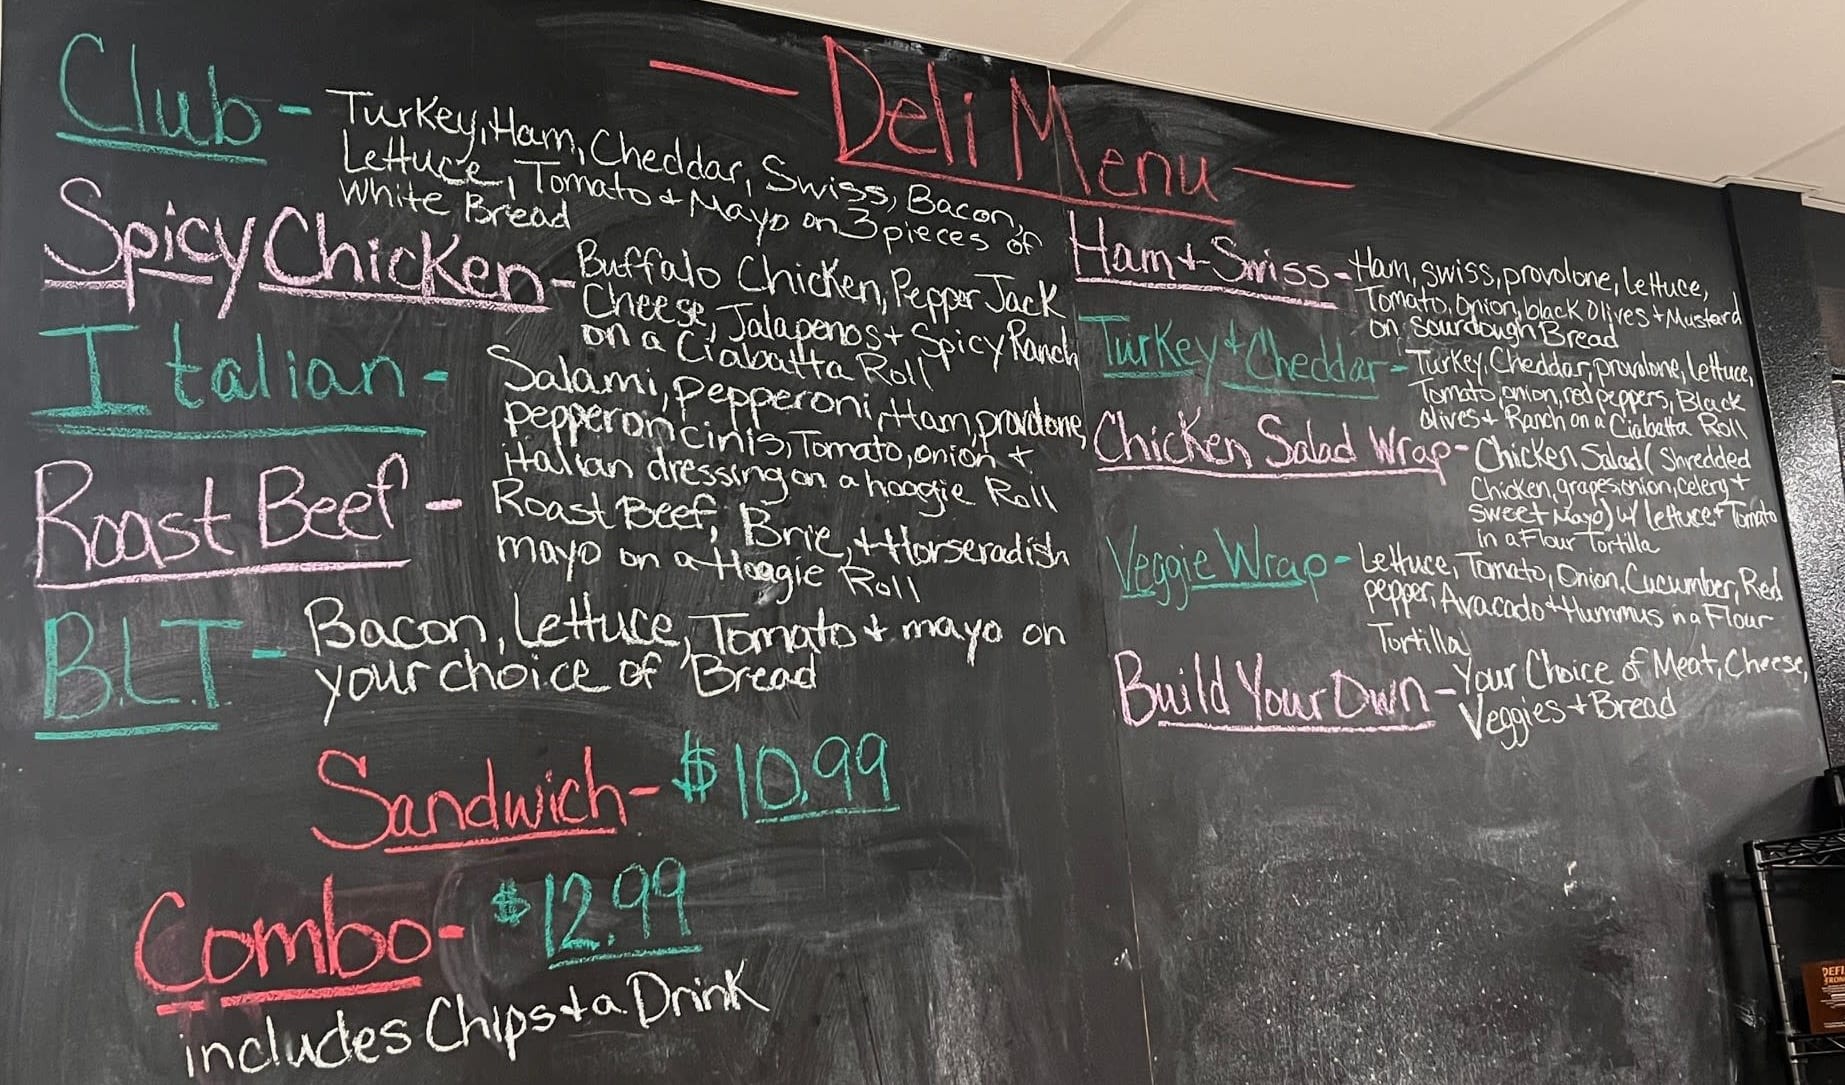 — Deli Menu —
Club - Turkey, Ham, Cheddar, Swiss, Bacon,
Lettuce, Tomato + Mayo on 3 pieces of
White Bread
Spicy Chicken - Buffalo Chicken, Pepper Jack
Cheese, Jalapenos + Spicy Ranch
on a Ciabatta Roll
Italian - Salami, Pepperoni, Ham, provolone,
pepperoncinis, Tomato, onion +
italian dressing on a hoagie Roll
Roast Beef - Roast Beef, Brie, + Horseradish
mayo on a Hoagie Roll
B.L.T - Bacon, Lettuce, Tomato + mayo on
your choice of Bread
Sandwich - $10.99
Combo - $12.99
includes Chips + a Drink
Ham + Swiss - Ham, swiss, provolone, lettuce,
Tomato, Onion, black Olives + Mustard
on sourdough Bread
Turkey + Cheddar - Turkey, Cheddar, provolone, lettuce,
Tomato, onion, red peppers, Black
olives + Ranch on a Ciabatta Roll
Chicken Salad Wrap - Chicken Salad (Shredded
Chicken, grapes, onion, celery +
sweet Mayo) w/ lettuce + Tomato
in a Flour Tortilla
Veggie Wrap - Lettuce, Tomato, Onion, Cucumber, Red
pepper, Avacado + Hummus in a Flour
Tortilla
Build Your Own - Your Choice of Meat, Cheese,
Veggies + Bread